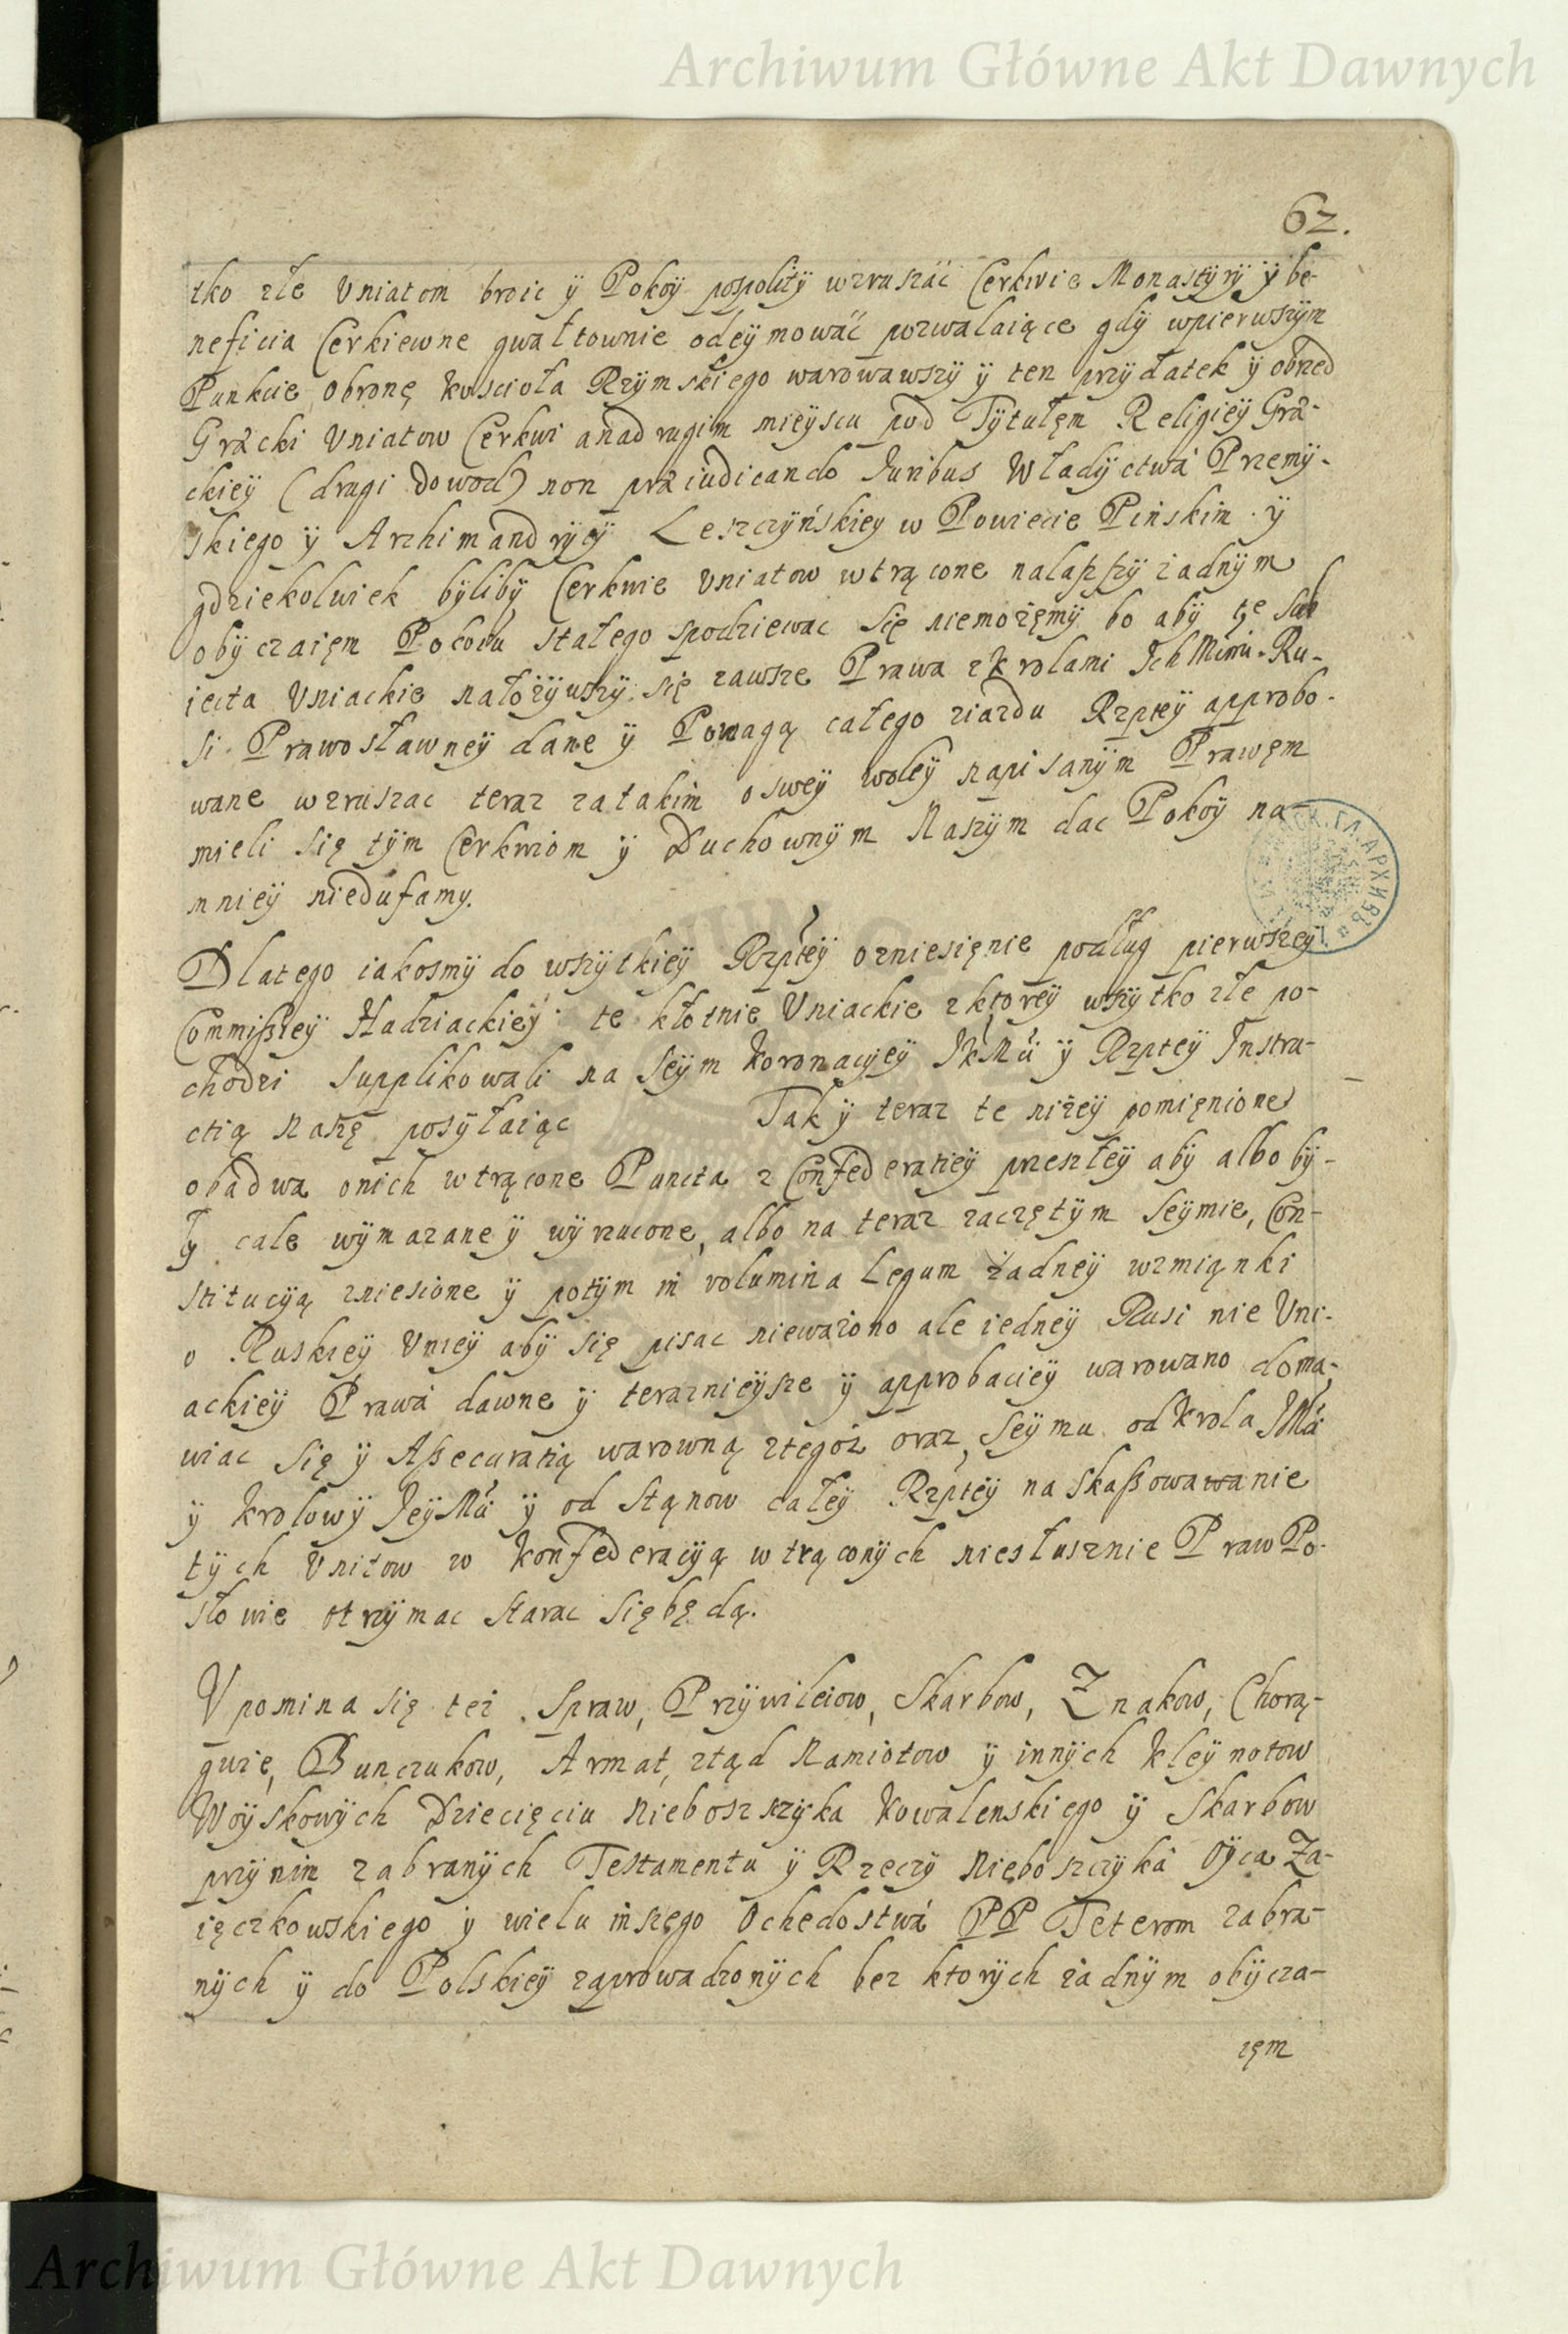 Archiwum Główne Akt Dawnych
62.
tko złe Vniatom broic ÿ Pokoÿ pospolitÿ wzruszáć Cerkwie Monastÿrÿ ÿ be-
neficia Cerkiewne gwałtownie odeÿmowáć pozwalaiące gdÿ wpierwszÿm
Punkcie obronę koscioła Rzÿmskiego warowawszÿ ÿ ten przÿdatek ÿ obrzed
Græcki Vniatow Cerkwi anadrugim mieÿscu pod Tÿtułęm Religieÿ Græ-
ckieÿ (drugi dowod) non præiudicando Juribus Władÿctwá Przemÿ-
skiego ÿ Archimandrÿcÿ Leszczÿńskieÿ w Powiecie Pińskim ÿ
gdziekolwiek bÿlibÿ Cerkwie Vniatow wtrącone nalaszszÿ żadnÿm
obÿczaięm Pokoiu stałego spodziewac się niemożęmÿ bo abÿ te sub
iecta Vniackie nałożÿwszÿ się zawsze Prawa z krolami Ich Mśmi Ru-
si Prawosławneÿ dane ÿ Powagą całego ziazdu Rzpteÿ approbo-
wane wzruszac teraz zatakim oswey woleÿ napisanÿm Prawęm
mieli się tÿm Cerkwiom ÿ Duchownÿm Naszÿm dac Pokoÿ na-
mnieÿ niedufamy.
Dlatego iakosmÿ do wszÿtkieÿ Rzpteÿ ozniesięnie podług pierwszeÿ
Commißieÿ Hadziackieÿ te kłotnie Vniackie z ktoreÿ wszÿtko złe po-
chodzi supplikowali na Seÿm Koronacÿeÿ JKMci ÿ Rzpteÿ Instru-
ctią naszę posÿłaiąc Tak ÿ teraz te niżeÿ pomięnione
obadwa onich wtrącone Puncta z Confederatieÿ przeszłeÿ abÿ albo bÿ-
łÿ cale wÿmazane ÿ wÿrzucone, albo na teraz zaczętÿm Seÿmie, Con-
stitucÿą zniesione ÿ potÿm in volumina Legum żadneÿ wzmiąnki
o Ruskieÿ Vnieÿ abÿ się pisac nieważono ale iedneÿ Rusi nie Vni-
ackieÿ Prawá dawne ÿ teraznieÿsze ÿ approbacieÿ warowano doma-
wiac się ÿ Aßecuratią warowną ztegoż oraz Seÿmu od Krola JMci
ÿ Krolowÿ JeÿMci ÿ od Stąnow całeÿ Rzpteÿ na skaßowawanie
tÿch Vnitow w konfederacÿą wtrąconÿch niesłusznie Praw Po-
słowie otrzÿmac starac siębędą.
Vpomina się też Spraw, Przÿwileiow, Skarbow, Znakow, Chorą-
gwie, Bunczukow, Armat, ztąd Namiotow ÿ innÿch Kleÿnotow
Woÿskowÿch Dziecięciu Nieboszszÿka Kowalenskiego ÿ Skarbow
przÿnim zabranÿch Testamentu ÿ Rzeczÿ Nieboszczÿká Oÿca Za-
ięczkowskiego ÿ wielu inszego Ochedostwá PP Teterom zabra-
nÿch ÿ do Polskieÿ zaprowadzonÿch bez ktorÿch żadnÿm obÿcza-
ięm
Archiwum Główne Akt Dawnych